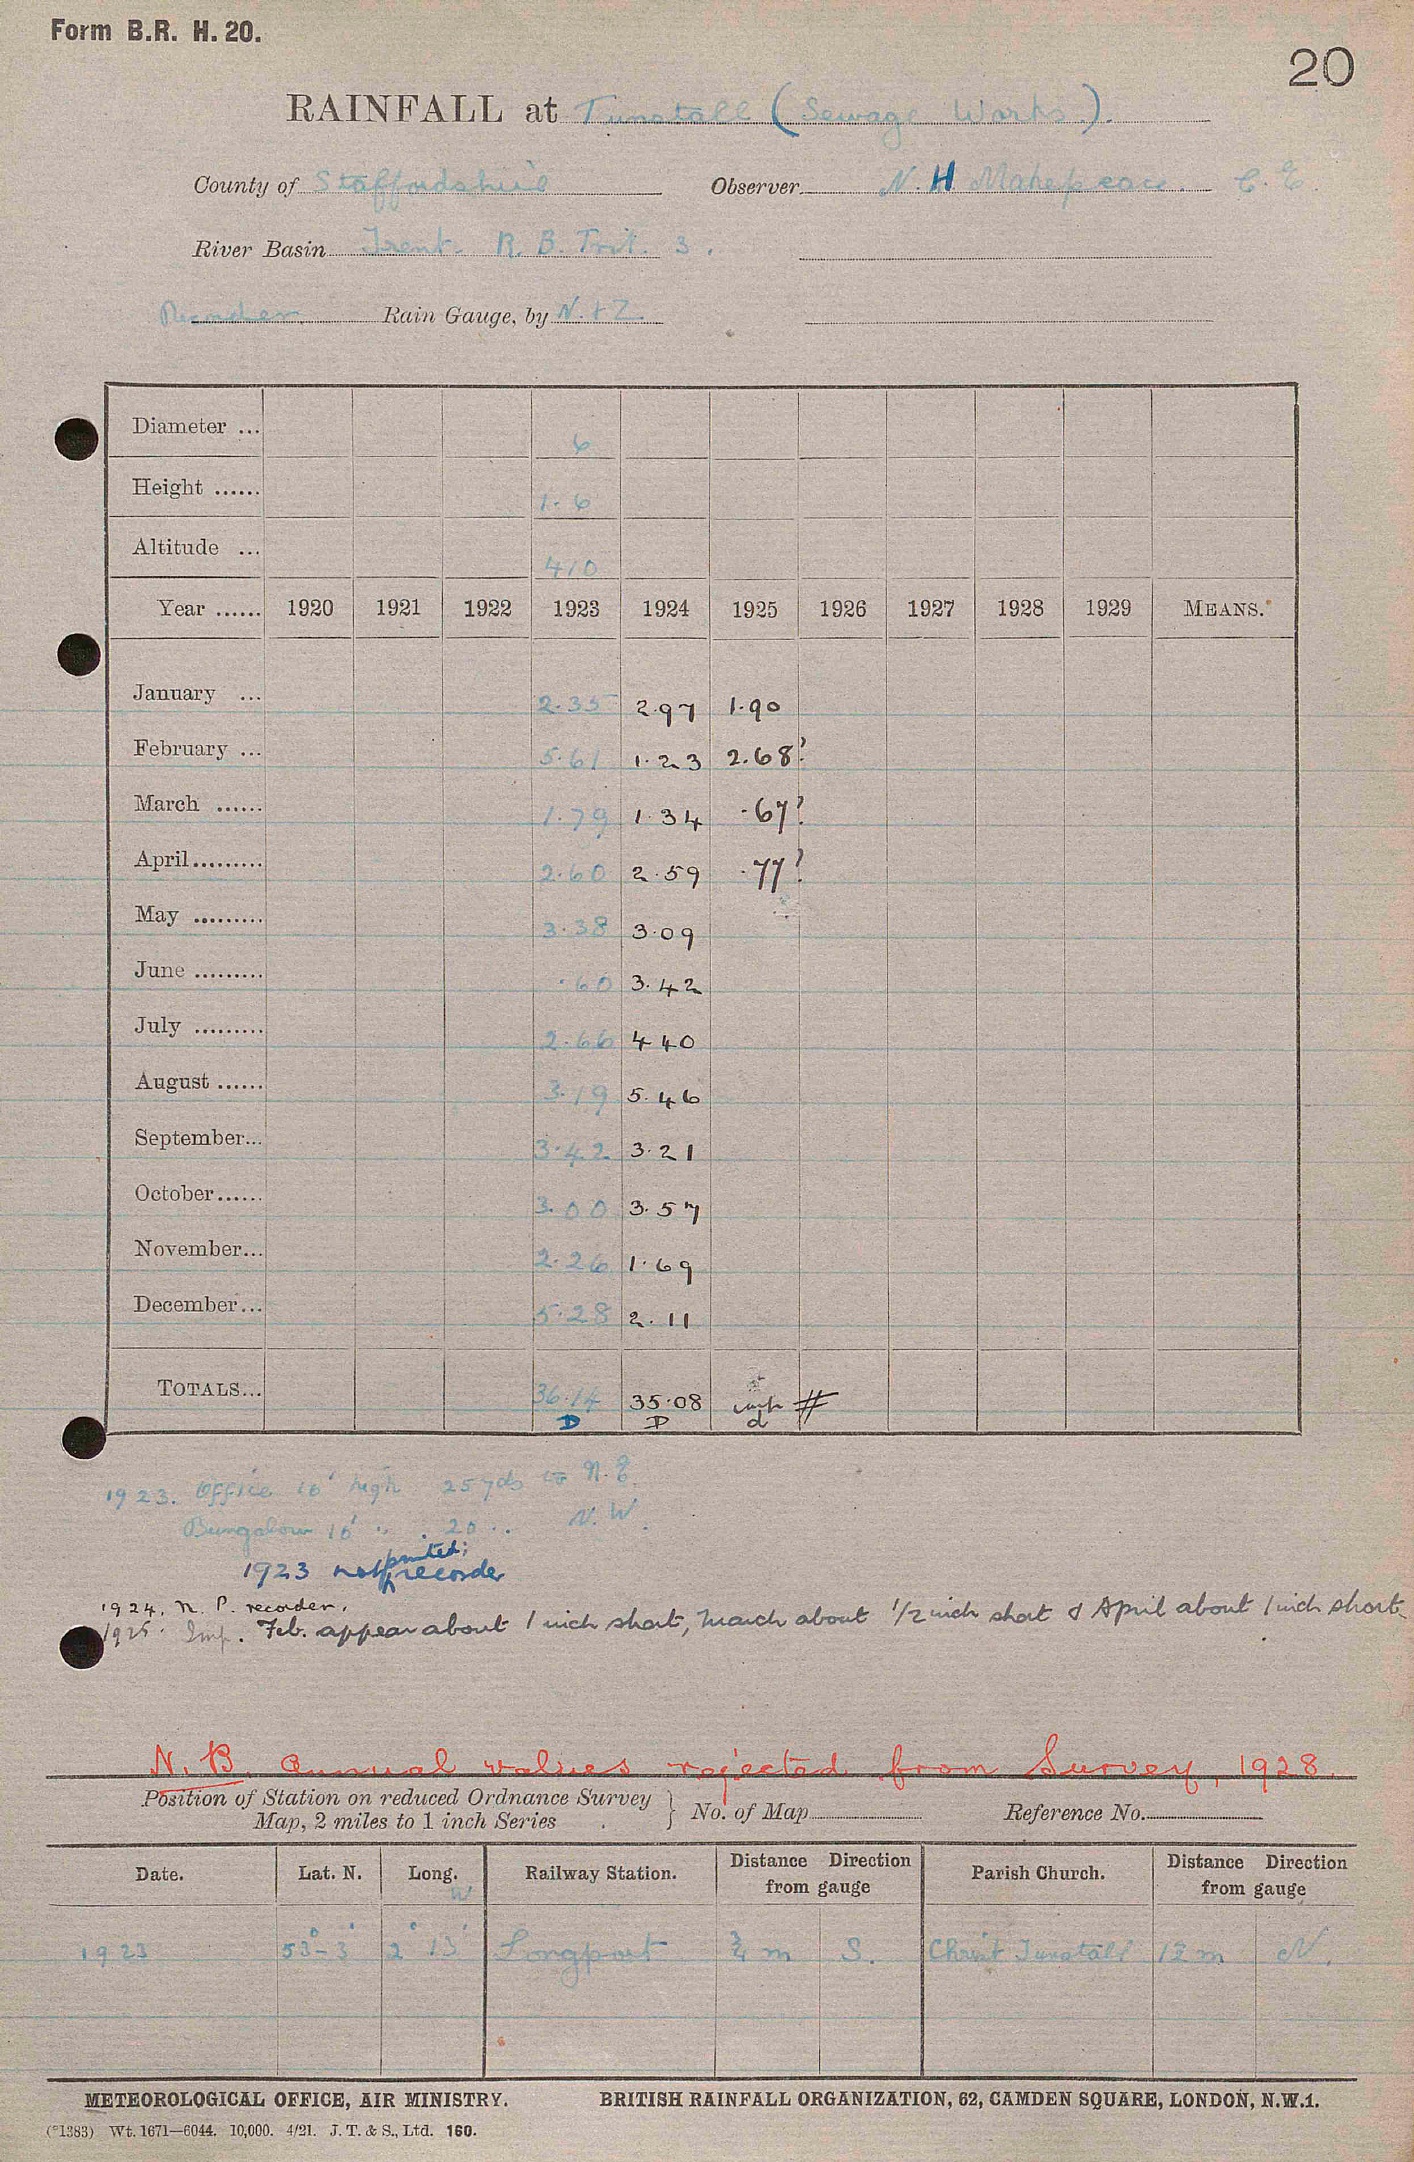 Form B.R. H. 20.
20
RAINFALL at Tunstall (Sewage Works).
County of Staffordshire Observer N. H. Makepeace. C. E.
River Basin Trent. R. B. Trib. 3.
Recorder Rain Gauge, by N. + Z.
Diameter ... 6
Height ...... 1. 6
Altitude ... 410
Year ...... 1920 1921 1922 1923 1924 1925 1926 1927 1928 1929 MEANS.
January ... 2.35 2.97 1.90
February ... 5.61 1.23 2.68?
March ...... 1.79 1.34 .67?
April......... 2.60 2.59 .77?
May ......... 3.38 3.09
June ......... .60 3.42
July ......... 2.66 4 40
August ...... 3.19 5.46
September... 3.42 3.21
October...... 3.00 3.57
November... 2.26 1.69
December... 5.28 2.11
TOTALS... 36.14 35.08 imp #
D D d
1923. Office 16' high 25 yds to N.E.
Bungalow 16' " . 20 .. N.W.
1923 not printed; recorder
1924. N. P. recorder.
1925. Imp. Feb. appear about 1 inch short, March about 1/2 inch short & April about 1 inch short.
N. B. Annual values rejected from Survey, 1928.
Position of Station on reduced Ordnance Survey Map, 2 miles to 1 inch Series } No. of Map Reference No.
Date. Lat. N. Long. W Railway Station. Distance Direction from gauge Parish Church. Distance Direction from gauge
1923 53°-3' 2° 13' Longport 3/4 m S. Christ Tunstall 1/2 m N.
METEOROLOGICAL OFFICE, AIR MINISTRY. BRITISH RAINFALL ORGANIZATION, 62, CAMDEN SQUARE, LONDON, N.W.1.
(*1383) Wt. 1671—6044. 10,000. 4/21. J. T. & S., Ltd. 160.